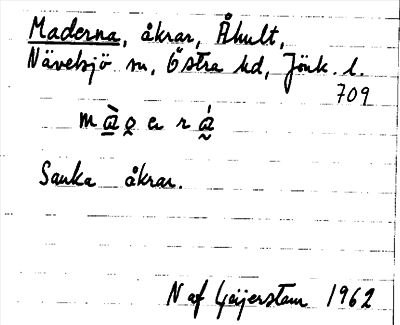 Maderna, åkrar, Åhult,
Nävelsjö sn, Östra hd, Jönk. l.
709
Sanka åkrar.
N af Geijerstam 1962